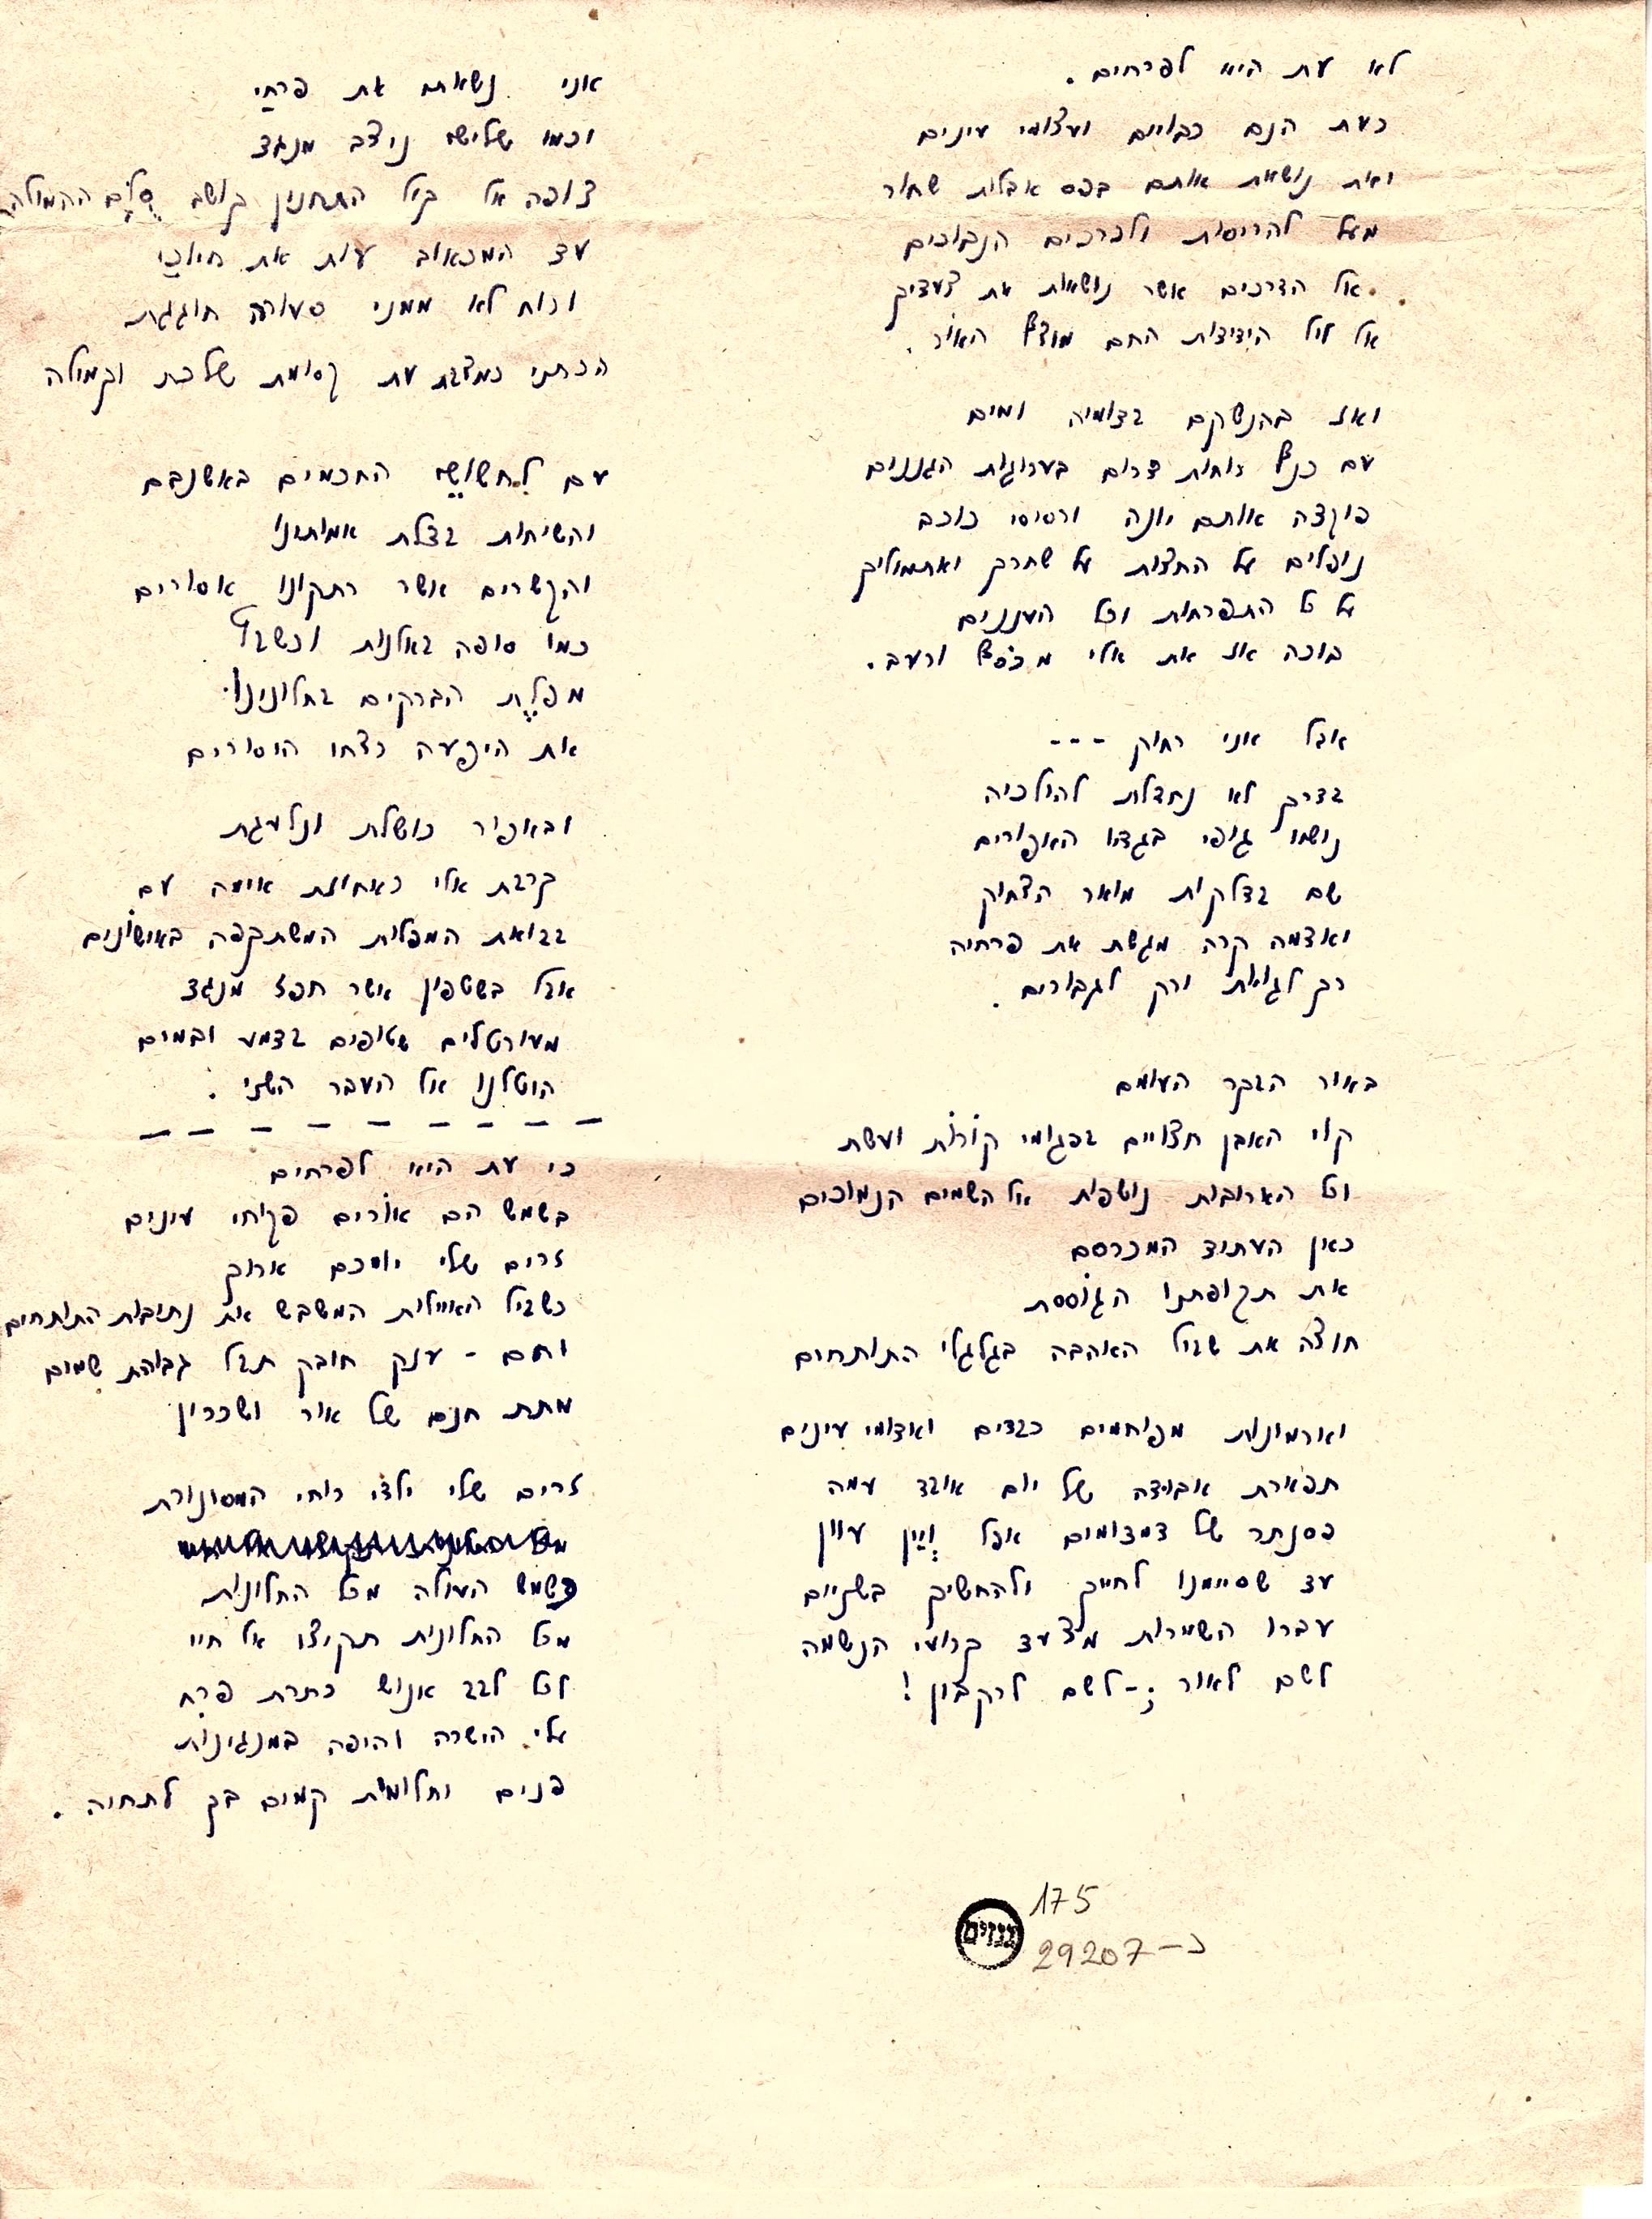 לא עת היא לפרחים.
כעת הנם כבויים ועצומי עינים
ואת נושאת אותם בפס אבלות שחור
מעל להריסות ולכרכים הנבוכים
אל הדרכים אשר נושאות את צעדיך
אל ליל הידידות החם מוצף האור.
ואז בהנשקם בדומיה ומים
עם כנף רוחות דרום בערוגות הגננים
פוקדה אותם יונה ורסיסי כוכב
נופלים על החצות על שחרך ואתמוליך
על כל התפרחות וכל העננים
בוכה אז את אלי מכסף ורעב.
אבל אני רחוק ---
בדרך לא נחדלת להולכיה
נושמו גופי בגדיו האפורים
שם בדלקות מואר הצחוק
ואדמה קרה מגשת את פרחיה
רק לגויות ורק לגבורים.
באור הבקר העומם
קוי האבן חצויים בפגומי קורות ועשת
וכל הארובות נוטפות אל השמים הנמוכים
כאן העתוד המכרסם
את תקופתנו הגוססת
חוצה את שביל האהבה בגלגלי התותחים
וארמונות מפוחמים כבדים ואדומי עינים
תפארת אבודה של יום אובד עמה
פסנתר של דמדומים אפל ויין עוון
עד שסיימנו לחייך ולהחשיך בשניים
עברו השמירות מצעד קרועי הנשמה
לשם לאור ; - לשם לרקבון !
אני נשאתי את פרחי
וכמו שלישי ניצב מנגד
צופה אל קול התחנון קושב סלם ההמולה
עד המכאוב עות את חיוכי
וכוח לא ממני סעורה חוגגת
הכתני כמצבת עת קסומת שלכת וקמולה
עם לחשושי החכמים באשנבם
והשיחות בדלת אמותנו
והקשרים אשר רתקונו אסורים
כמו סופה באלנות וכשרב
מפלת הברקים בחלונינו.
את היפעה רצחו הוסורים
ובאפור כושלת ונלעגת
קרבת אלי כאחוזת אימה עם
בבואת המפלות המשתקפה באישונים
אבל בשטפון אשר חפז מנגד
מעורטלים שטופים בדמע ובמים
הוטלנו אל העבר השני .
— — — — — — — — —
כי עת היא לפרחים
בשמש הם אורים פקוחי עינים
זרים שלי יומכם ארוך
כשביל האיילות המשבש את נתיבות התותחים
וחם - ענק חובק תבל גבוהת שמים
מתת חנם של אור ושכרון
זרים שלי ילדי רוחי המסונורת
כשמש העולה מכל החלונות
מכל החלונות תקיצו אל חיי
לכל לבב אנוש כתרת פרח
אלי הישרה והיפה במנגינות
פנים וחלומות קמים בך לתחיה .
175
כ-29207
גנזים